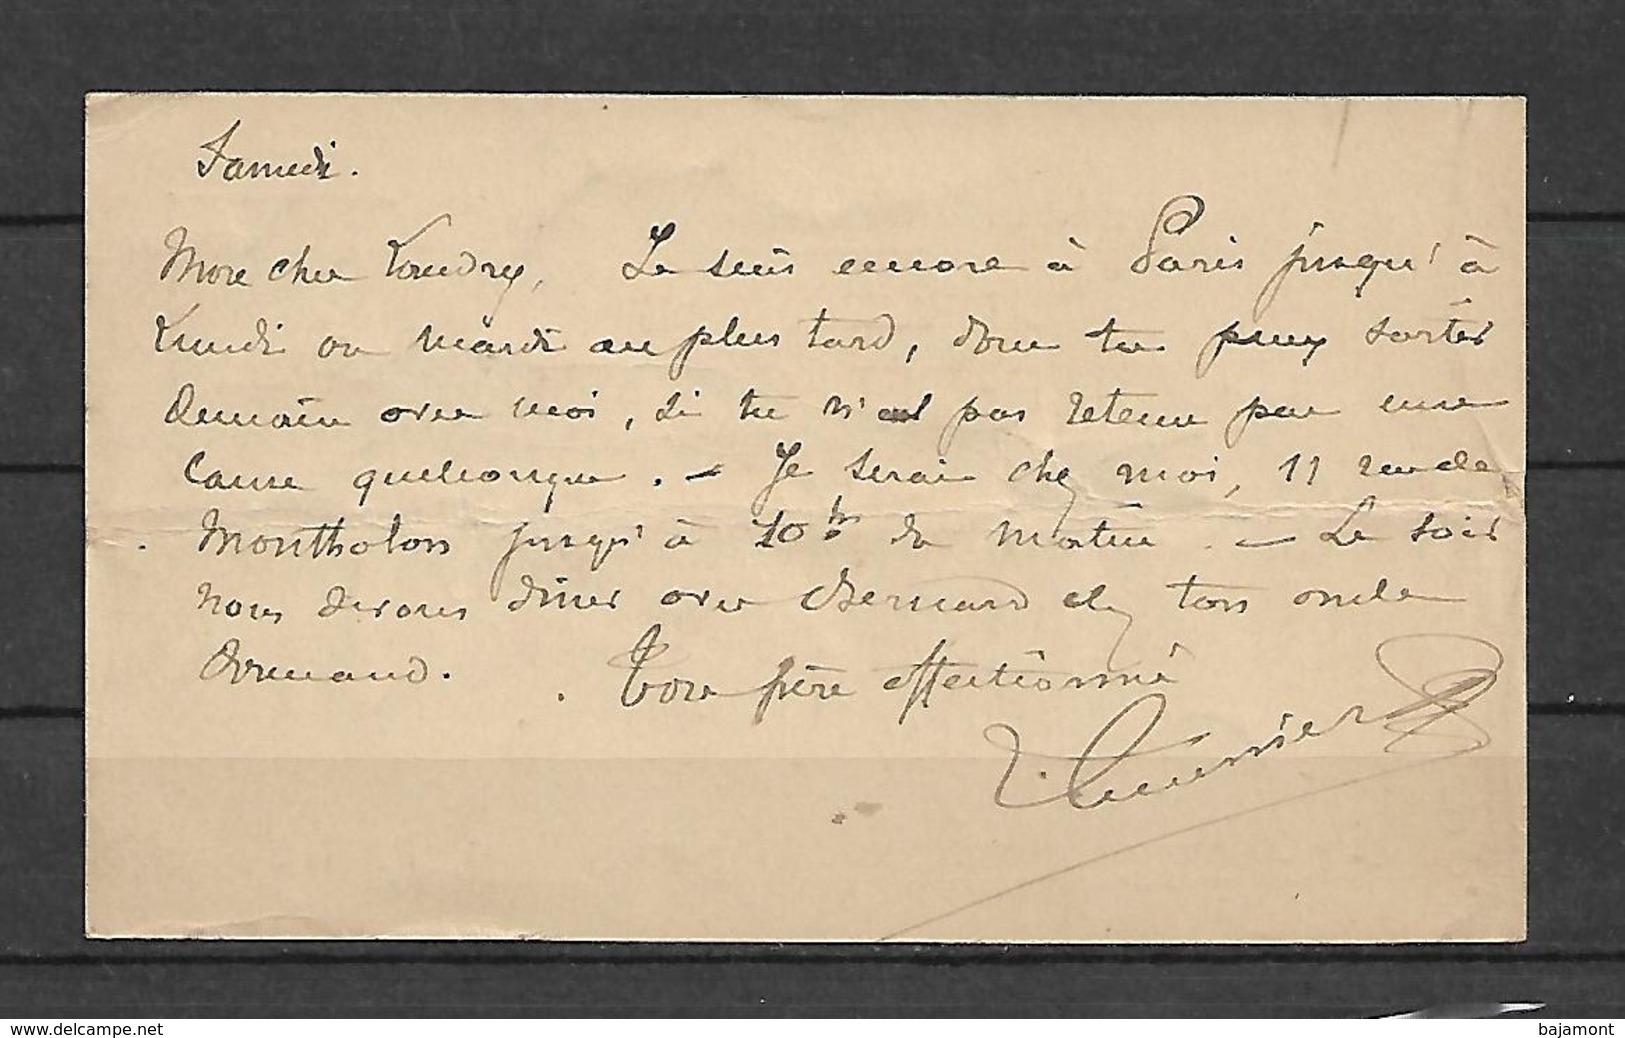 Samedi.
Mon cher Landry, Je suis encore à Paris jusqu'à
Lundi ou Mardi au plus tard, donc tu peux sortir
demain avec moi, si tu n'es pas retenu par une
cause quelconque. — Je serai chez moi, 11 rue de
Montholon jusqu'à 10h du matin. — Le soir
nous devons dîner avec Bernard chez ton oncle
Armand. Ton père affectionné
www.delcampe.net
bajamont